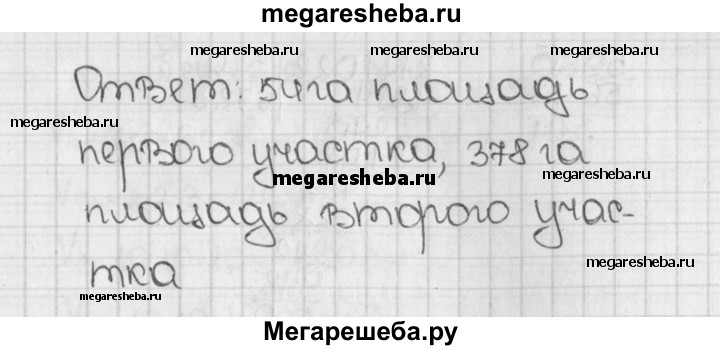 megaresheba.ru
megaresheba.ru megaresheba.ru megaresheba.ru
Ответ: 54 га площадь
megaresheba.ru
первого участка, 378 га
megaresheba.ru megaresheba.ru
площадь второго учас-
тка
megaresheba.ru
megaresheba.ru
Мегарешеба.ру